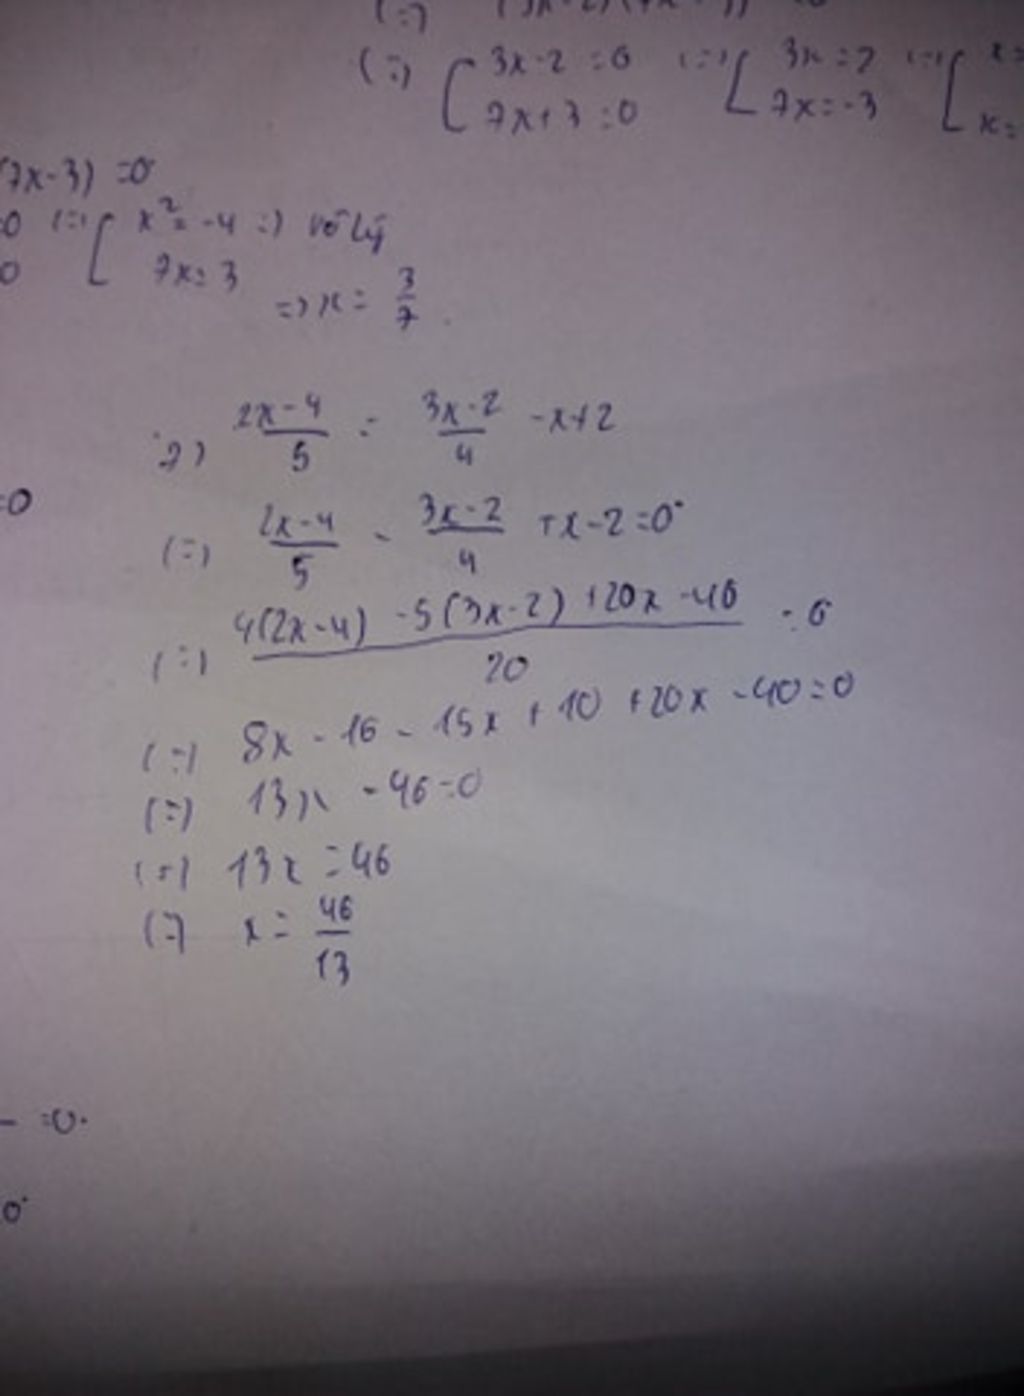 (=)
(=) [ 3x-2=0 (=) [ 3x=2 (=) [ x=
7x+3=0 7x=-3 x=
(7x-3) =0
=0 (=) [ x²=-4 =) vô lý
0 7x=3
=) x= 3/7.
2) (2x-4)/5 = (3x-2)/4 -x+2
=0
(=) (2x-4)/5 - (3x-2)/4 +x-2=0
(=) (4(2x-4) -5(3x-2) +20x -40)/20 =0
(=) 8x -16 -15x +10 +20x -40=0
(=) 13x -46=0
(=) 13x =46
(=) x= 46/13
=0.
0